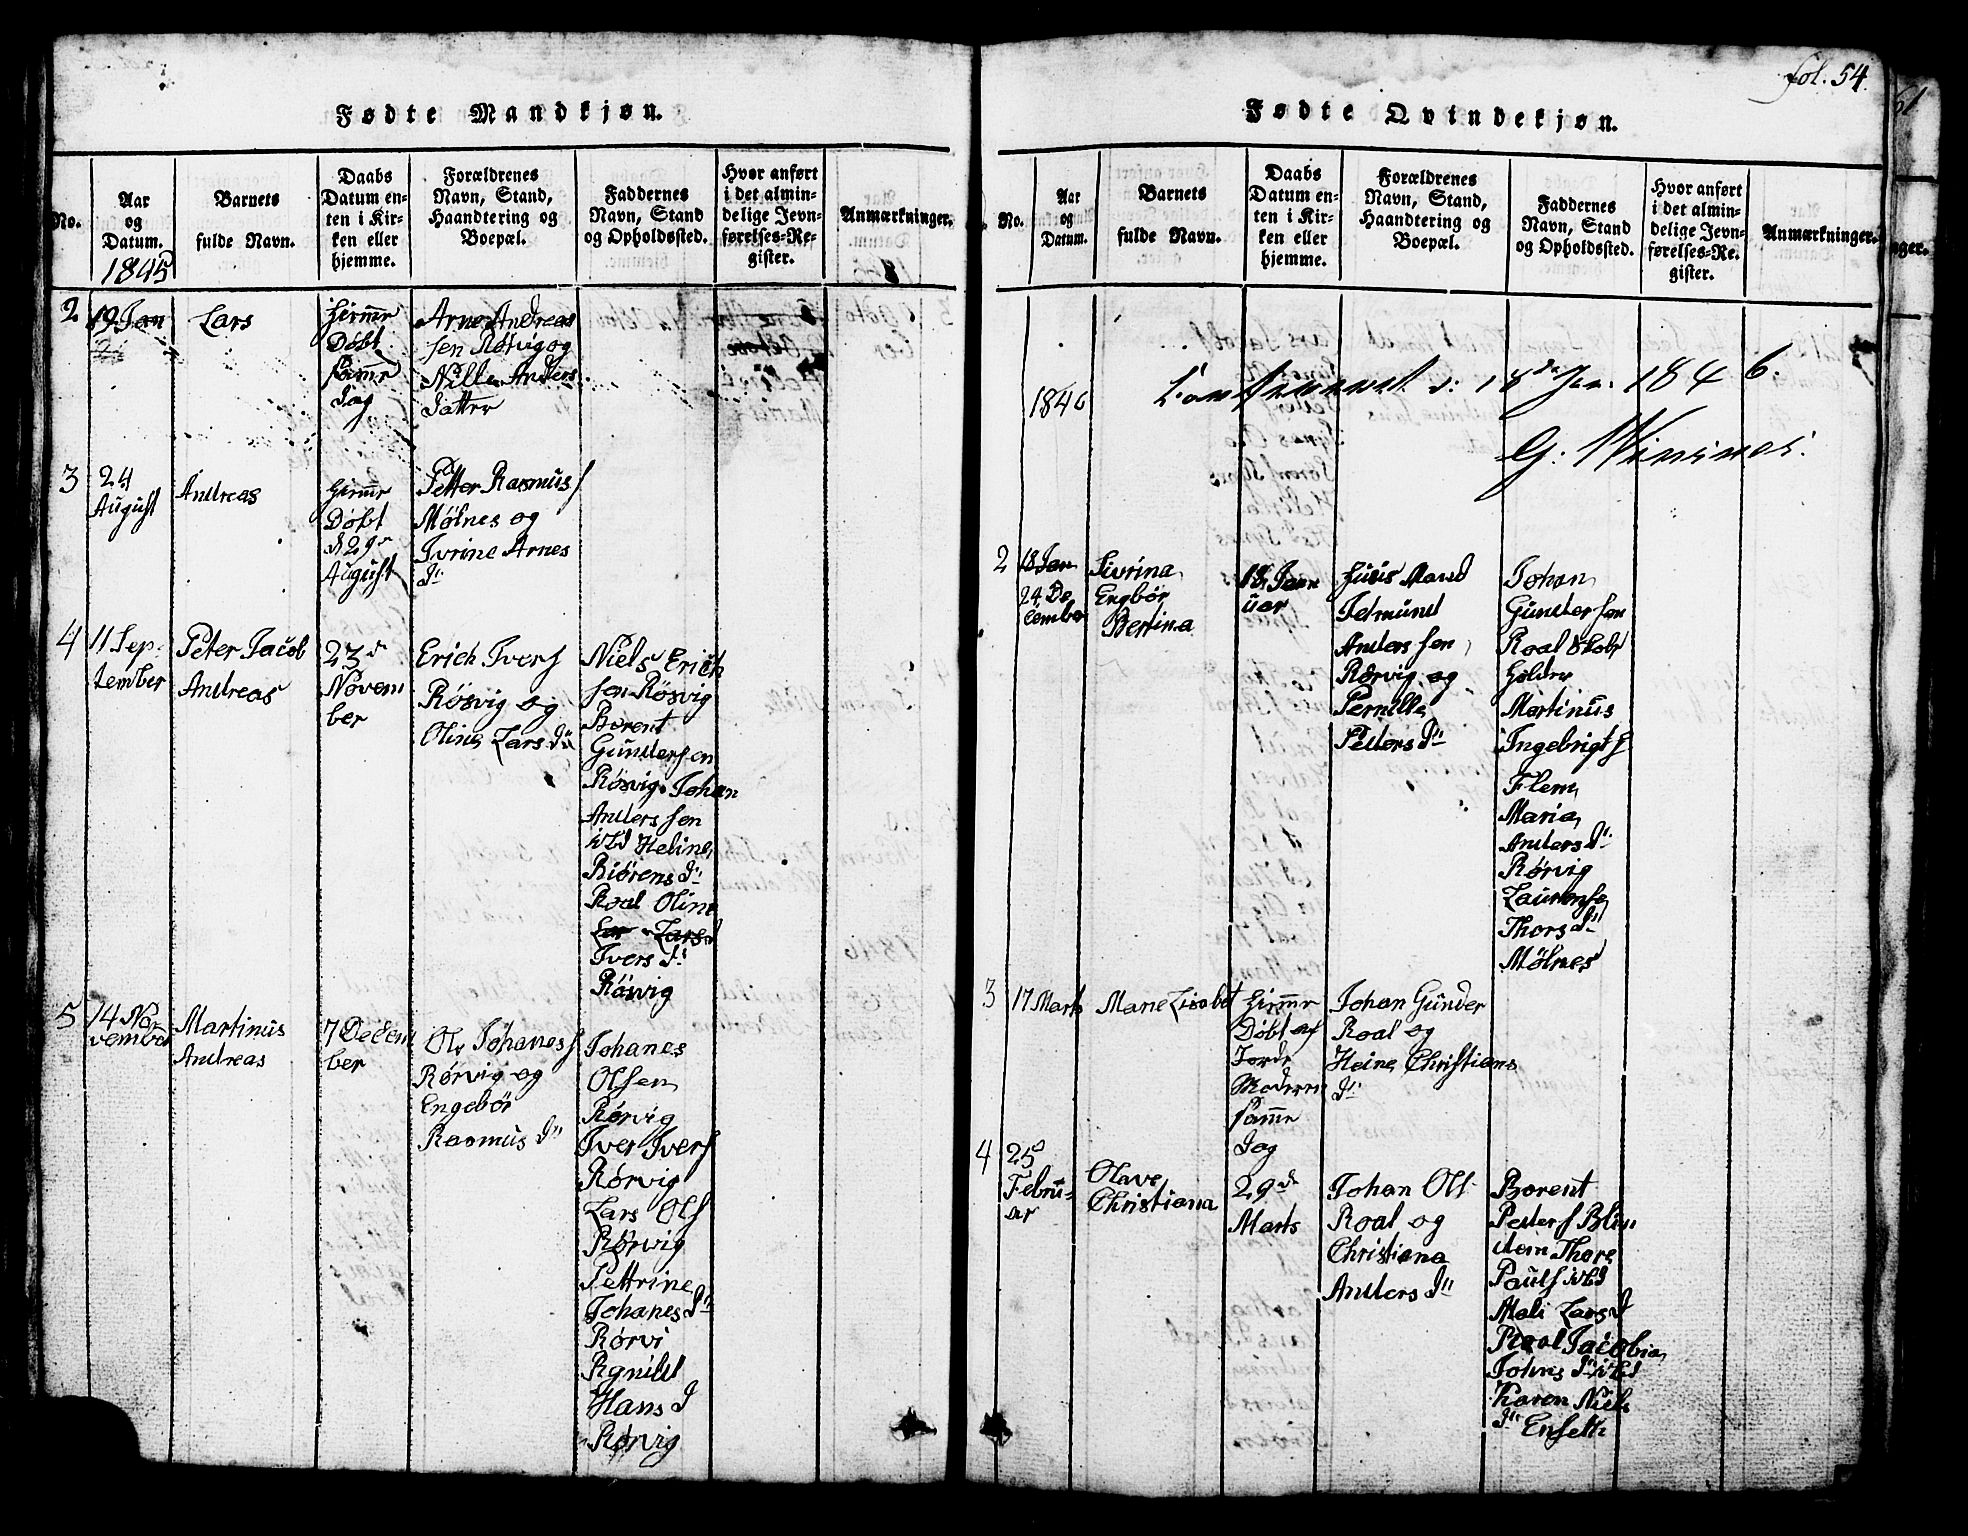 fol. 54.
61
Fødte Mandkjøn.
No.
Aar og Datum.
1845
Barnets fulde Navn.
Daabs Datum enten i Kirken eller hjemme.
Forældrenes Navn, Stand, Haandtering og Boepæl.
Faddernes Navn, Stand og Opholdssted.
Hvor anført i det almindelige Jevnførelses-Register.
Anmærkninger.
2
19 Jan
Lars
Hiemr
Døbt
samr
Dag
Arne Andreas
sen Rørvig og
Nille Anders
Datter
3
24
August
Andreas
Hiemr
Døbt
d 29de
August
Petter Rasmuss
Mölnes og
Ivrine Arnes
Dtr
4
11 Sep-
tember
Peter Jacob
Andreas
23d
Novem
ber
Erich Ivers
Rösvig og
Oline Lars Dtr
Niels Erich
sen Rösvig
Berent
Gundersen
Rösvig Johan
Anderssen
ibd Heline
Biørens Dtr
Roal Oline
Lars
Ivers Dtr
Rösvig
5
14 No
vember
Martinus
Andreas
7 Decem
ber
Ole Johaness
Rørvig og
Engebör
Rasmus Dtr
Johanes
Olsen
Rørvig
Iver Ivers
Rørvig
Lars Ols
Rørvig
Pettrine
Johanes Dtr
Rørvi
Hans D
Rørvig
Fødte Qvindekjøn.
No.
Aar og Datum.
Barnets fulde Navn.
Daabs Datum enten i Kirken eller hjemme.
Forældrenes Navn, Stand, Haandtering og Boepæl.
Faddernes Navn, Stand og Opholdssted.
Hvor anført i det almindelige Jevnførelses-Register.
Anmærkninger.
nger.
1846
d: 18de Jan: 1846.
G:
2
18 Jan
24 De
cember
Sivrina
Engbör
Bertina
18 Jan
uar
Huus Mand
Jetmund
Anderssen
Rørvig og
Pernille
Petters Dtr
Johan
Gundersen
Roal Skole
Holder
Martinus
Ingebrigts
Flem
Maria
Anders Dtr
Rørvig
Laurense
Thors Dtr
Mölnes
3
17 Marts
Marie Lisabet
Hiemr
Døbt af
Jorde
Moderen
samme
Dag
Johan Gunder
Roal og
Heine Christians
Dtr
4
25
Febru-
ar
Olave
Christiana
29de
Marts
Johan Ols
Roal og
Christiana
Anders Dtr
Berent
Petters Blin
dem Thore
Pauls ibd
Mali Lars D
Roal Jacobia
Johns Dtr ibd
Karen Niels
Dtr Enseth